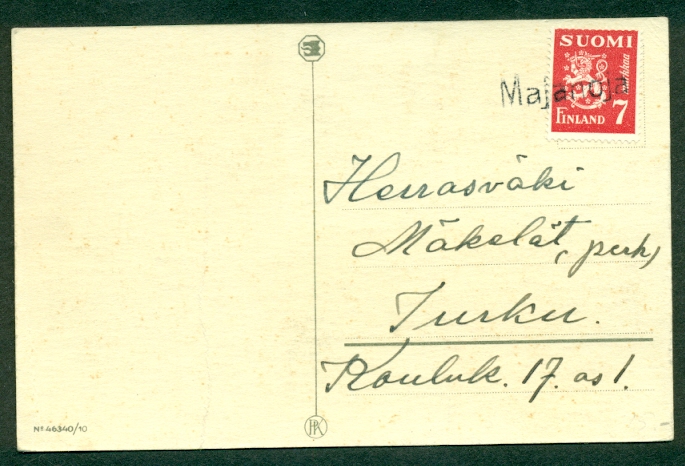 SUOMI
markkaa
FINLAND 7
Majanoja
Herrasväki
Mäkelät, (perh)
Turku.
Kouluk. 17. as 1.
No 46340/10
PK